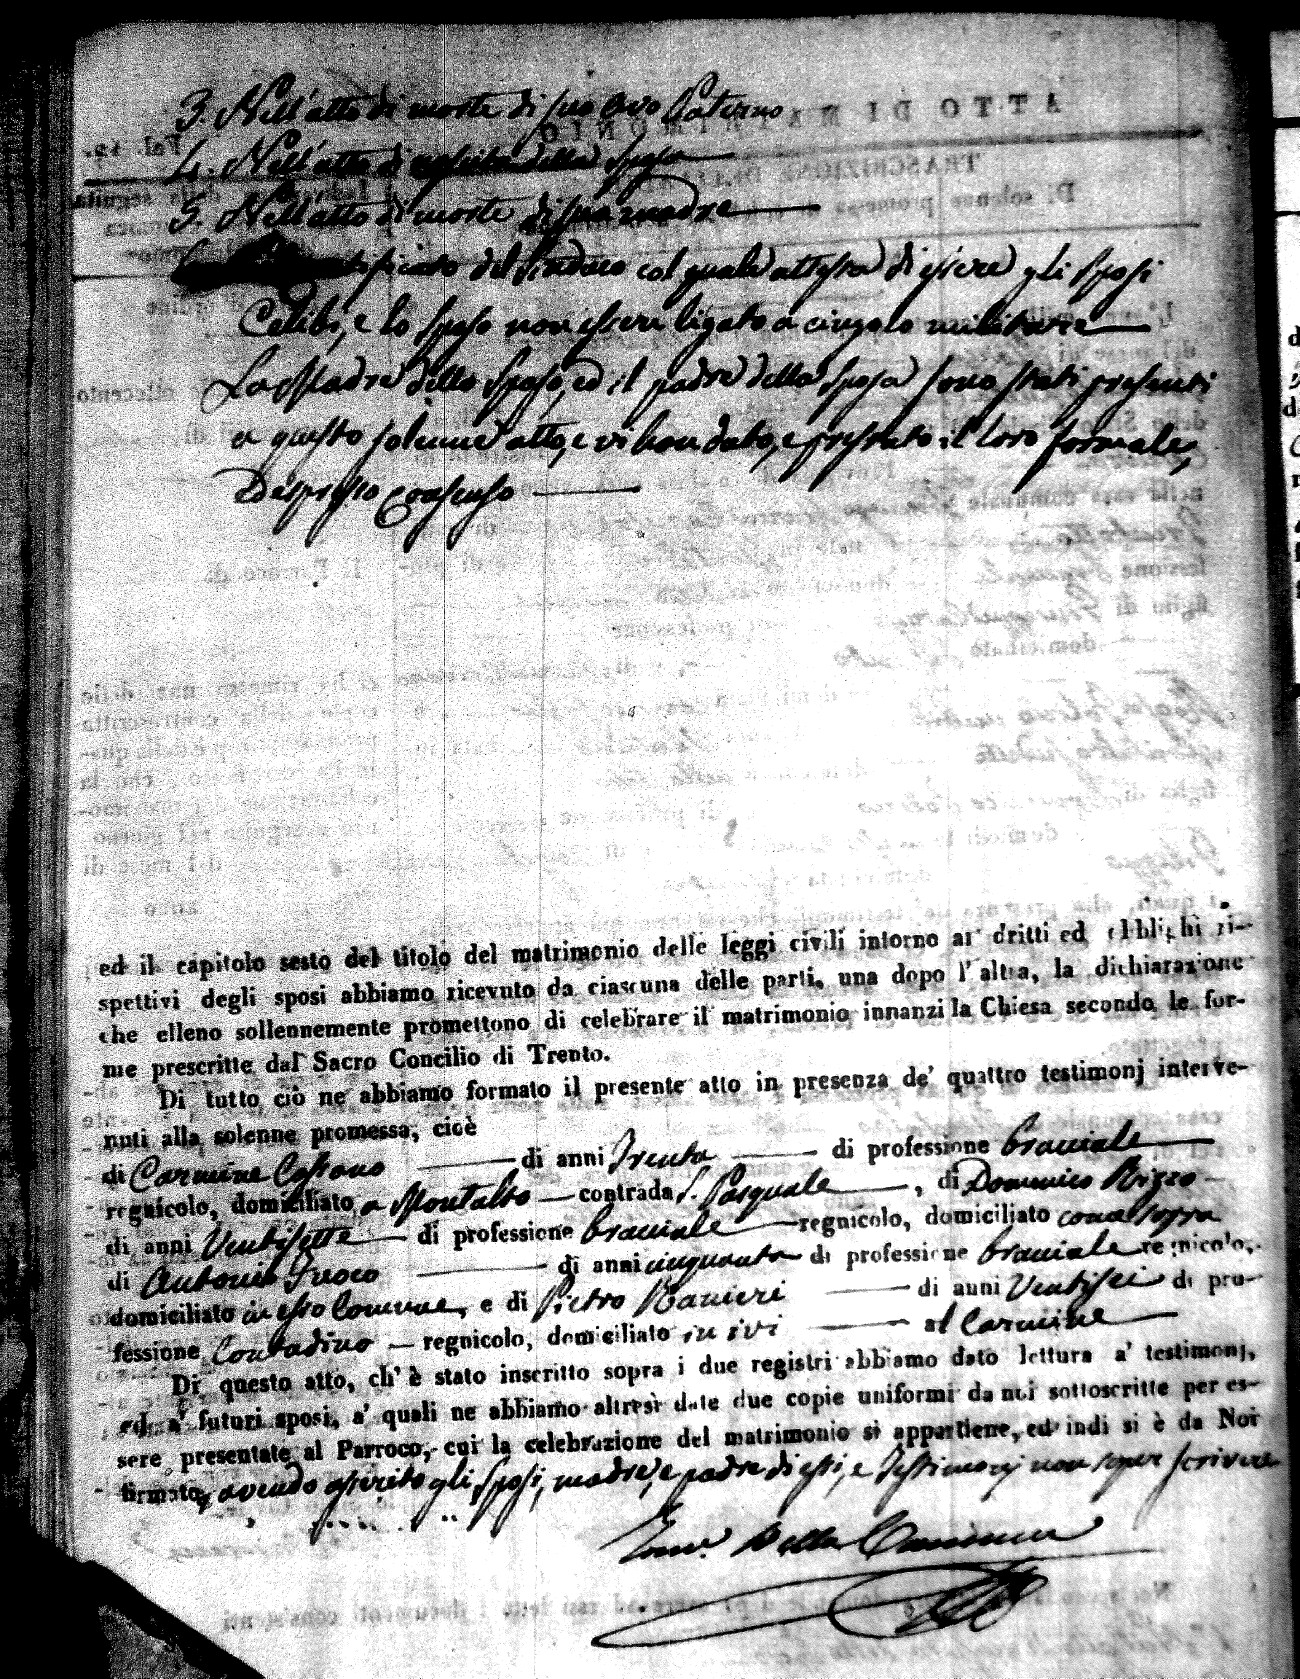 3. Nell'atto di morte di suo Avo Paterno
4. Nell'atto di nascita della Sposa
5. Nell'atto di morte di sua madre
del Sindaco col quale attesta di essere gli Sposi
Celibi, e lo Sposo non essere ligato a cingolo militare
La Madre dello Sposo, ed il padre della Sposa sono stati presenti
a questo solenne atto, e vi han dato, e prestato il loro formale,
Ed espresso Consenso
ed il capitolo sesto del titolo del matrimonio delle leggi civili intorno ai dritti ed obblighi ri-
spettivi degli sposi abbiamo ricevuto da ciascuna delle parti, una dopo l'altra, la dichiarazione
che elleno sollennemente promettono di celebrare il matrimonio innanzi la Chiesa secondo le for-
me prescritte dal Sacro Concilio di Trento.
Di tutto ciò ne abbiamo formato il presente atto in presenza de' quattro testimonj interve-
nuti alla solenne promessa, cioè
di Carmine di anni Trenta di professione bracciale
regnicolo, domiciliato a Montalto contrada S. Pasquale, di Domenico Rizzo
di anni Ventisette di professione bracciale regnicolo, domiciliato come sopra
di Antonio di anni cinquanta di professione bracciale regnicolo,
domiciliato in esso Comune, e di Pietro Ranieri di anni Ventisei di pro-
fessione Contadino regnicolo, domiciliato in ivi al Carmine
Di questo atto, ch' è stato inscritto sopra i due registri abbiamo dato lettura a' testimonj,
ed a' futuri sposi, a' quali ne abbiamo altresì date due copie uniformi da noi sottoscritte per es-
sere presentate al Parroco, cui la celebrazione del matrimonio si appartiene, ed indi si è da Noi
firmato, avendo asserito gli Sposi, madre, e padre di essi, e Testimonj non saper scrivere
Della